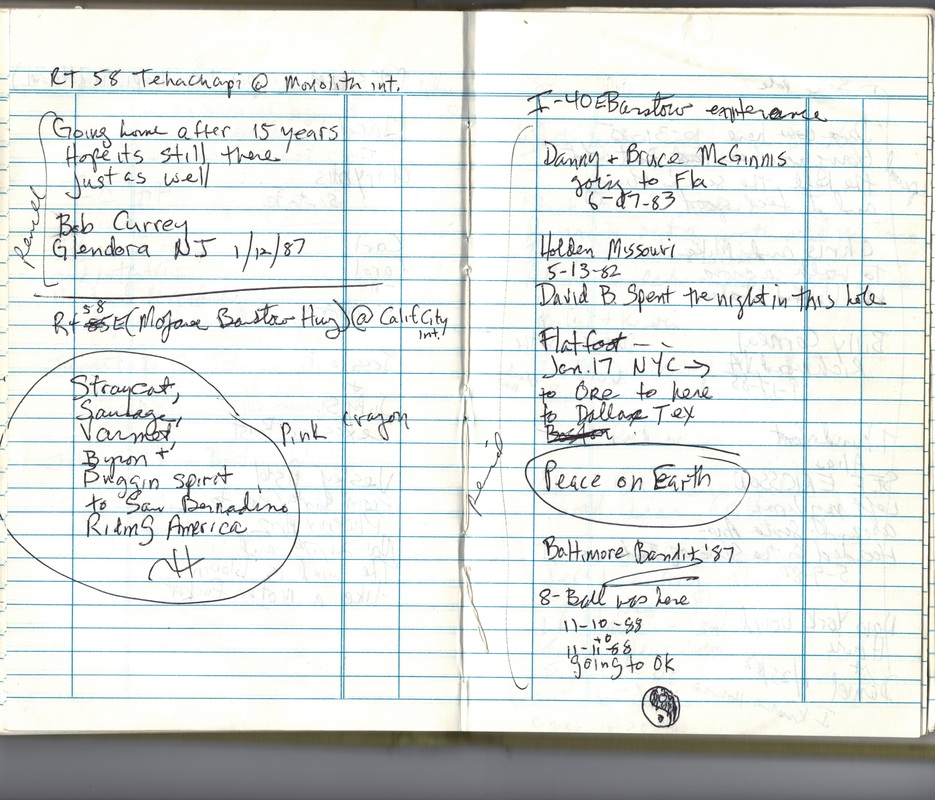 RT 58 Tehachapi @ Monolith int.
Pencil
Going home after 15 years
Hope its still there
Just as well
Bob Currey
Glendora NJ 1/12/87
Rt 58 E (Mojave Barstow Hwy) @ Calif City
int.
Straycat,
Sausage,
Varmet,
Byron +
Duggin spirit
to San Bernadino
Riding America
Pink crayon
I-40E Barstow enterance
Pencil
Danny + Bruce McGinnis
going to Fla
6-27-83
Holden Missouri
5-13-82
David B. Spent the night in this hole
Flatfoot --
Jan. 17 NYC →
to ORE to here
to Dallas Tex
Boston
Peace on Earth
Baltimore Bandit '87
8-Ball was here
11-10-88
to
11-11-88
going to OK